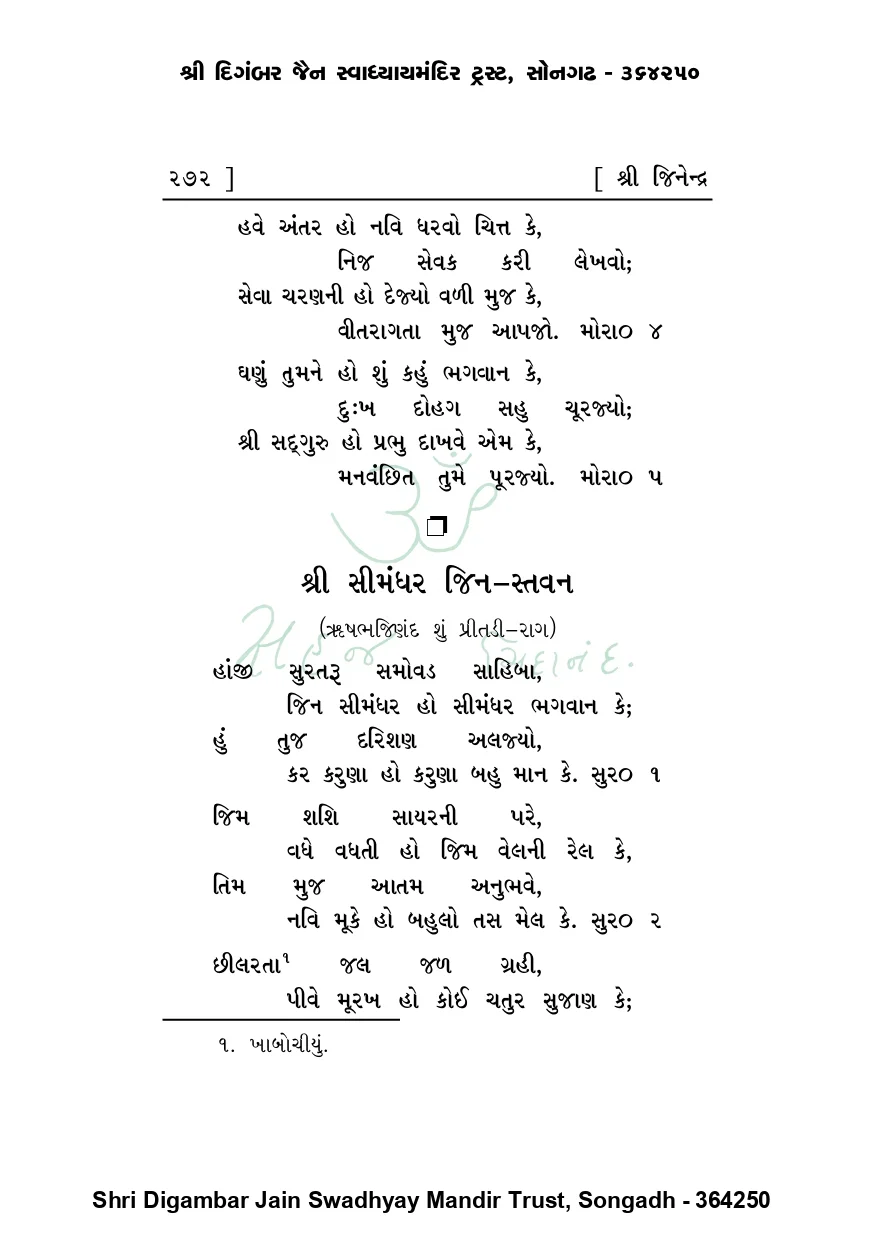 શ્રી દિગંબર જૈન સ્વાધ્યાયમંદિર ટ્રસ્ટ, સોનગઢ - ૩૬૪૨૫૦
૨૭૨ ] [ શ્રી જિનેન્દ્ર
હવે અંતર હો નવિ ધરવો ચિત્ત કે,
નિજ સેવક કરી લેખવો;
સેવા ચરણની હો દેજ્યો વળી મુજ કે,
વીતરાગતા મુજ આપજો. મોરા૦ ૪
ઘણું તુમને હો શું કહું ભગવાન કે,
દુઃખ દોહગ સહુ ચૂરજ્યો;
શ્રી સદ્ગુરુ હો પ્રભુ દાખવે એમ કે,
મનવંછિત તુમે પૂરજ્યો. મોરા૦ ૫
ૐ
શ્રી સીમંધર જિન–સ્તવન
(ઋષભજિણંદ શું પ્રીતડી–રાગ)
સહજ ચિદાનંદ.
હાંજી સુરતરૂ સમોવડ સાહિબા,
જિન સીમંધર હો સીમંધર ભગવાન કે;
હું તુજ દરિશણ અલજ્યો,
કર કરુણા હો કરુણા બહુ માન કે. સુર૦ ૧
જિમ શશિ સાયરની પરે,
વધે વધતી હો જિમ વેલની રેલ કે,
તિમ મુજ આતમ અનુભવે,
નવિ મૂકે હો બહુલો તસ મેલ કે. સુર૦ ૨
છીલરતા૧ જલ જળ ગ્રહી,
પીવે મૂરખ હો કોઈ ચતુર સુજાણ કે;
૧. ખાબોચીયું.
Shri Digambar Jain Swadhyay Mandir Trust, Songadh - 364250